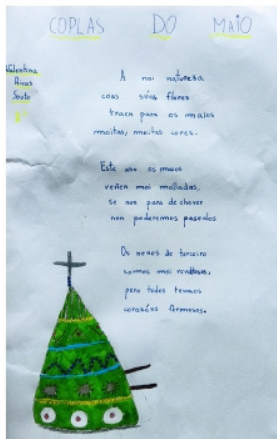 COPLAS DO MAIO
Valentina
Rivas
Souto
A nai natureza
coas súas flores
traen para os maios
moitas, moitas cores.
Este ano os maios
veñen moi mollados,
se non para de chover
non poderemos pasealos
Os nenos de terceiro
somos moi
pero todos temos
corazóns fermosos.